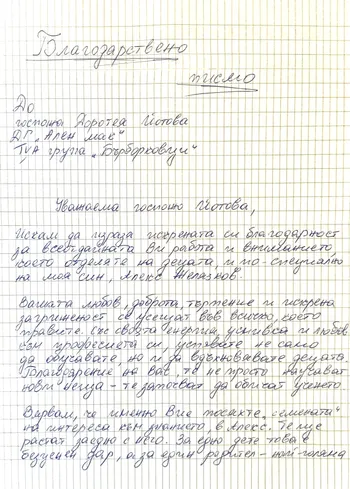 Благодарствено
писмо
До
госпожа Доротея Йотова
ДГ „Ален мак"
IVА група „Бърборковци"
Уважаема госпожо Йотова,
Искам да изразя искрената си благодарност
за всеотдайната Ви работа и вниманието,
което отделяте на децата, и по-специално
на моя син, Алекс Желязков.
Вашата любов, доброта, търпение и искрена
загриженост се усещат във всичко, което
правите. Със своята енергия, усмивка и любов
към професията си, успявате не само
да обучавате, но и да вдъхновявате децата.
Благодарение на вас, те не просто научават
нови неща - те започват да обичат ученето.
Вярвам, че именно Вие посяхте „семената"
на интереса към знанието, в Алекс. Те ще
растат заедно с него. За едно дете това е
безценен дар, а за един родител - най-голяма